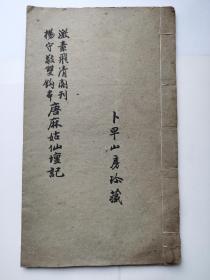 激素飛清阁刊
楊守敬雙鈎本唐麻姑仙壇記
卜早山房珍藏